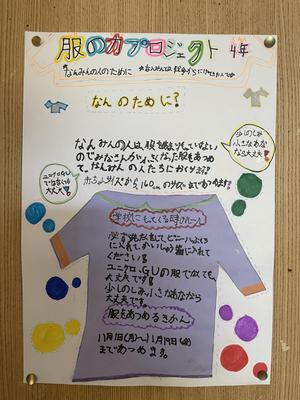 服の力プロジェクト 4年
なんみんの人のために
なんのために?
なんみんの人は、服があまりもっていないので
みなさんが小さくなった服をあつめて
なんみんの人たちにおくります。
赤ちゃんサイズから160cmのサイズまであつめます。
少しのしみ
小さなあな
なら大丈夫!
ユニクロ、GU
ではなくても
大丈夫!
学校にもってくる時のルール
必ず洗たくをして、ビニールぶくろ
に入れて、おいしゅう箱に入れて
ください!
ユニクロ、GUの服でなくても、
大丈夫です!
少しのしみ、小さなあななら
大丈夫です。
服をあつめるきかん
11月1日(月)〜11月19日(金)
まであつめます。